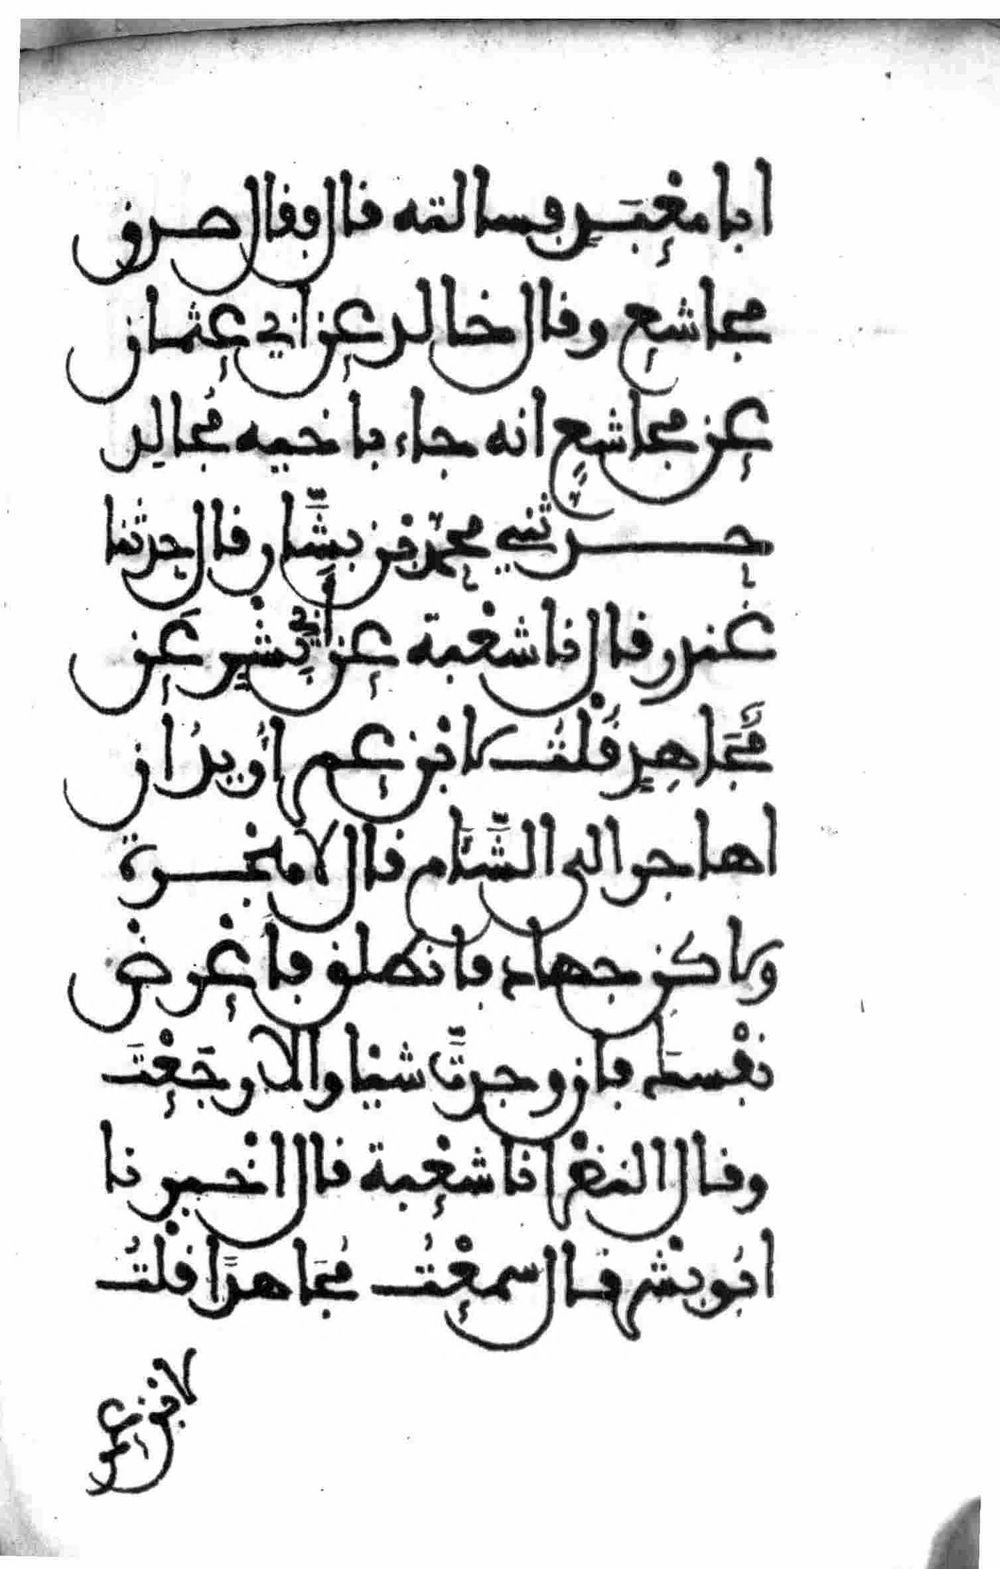 ابا معبد فسالته فال ففال صدف
مجاشع وفال خالد عن ابي عثمان
عن مجاشع انه جاء باخيه مجالد
حدثني محمد بن بشار فال حدثنا
غندر فال نا شعبة عن أبي بشير عن
مجاهد فلت لابن عمر أريد ان
اهاجر الى الشام فال لا هجرة
ولاكن جهاد فانطلق فأعرض
نفسك فان وجدت شيئا والا رجعت
وفال النضر انا شعبة فال اخبرنا
ابو بشر فال سمعت مجاهدا فلت
لابن عمر